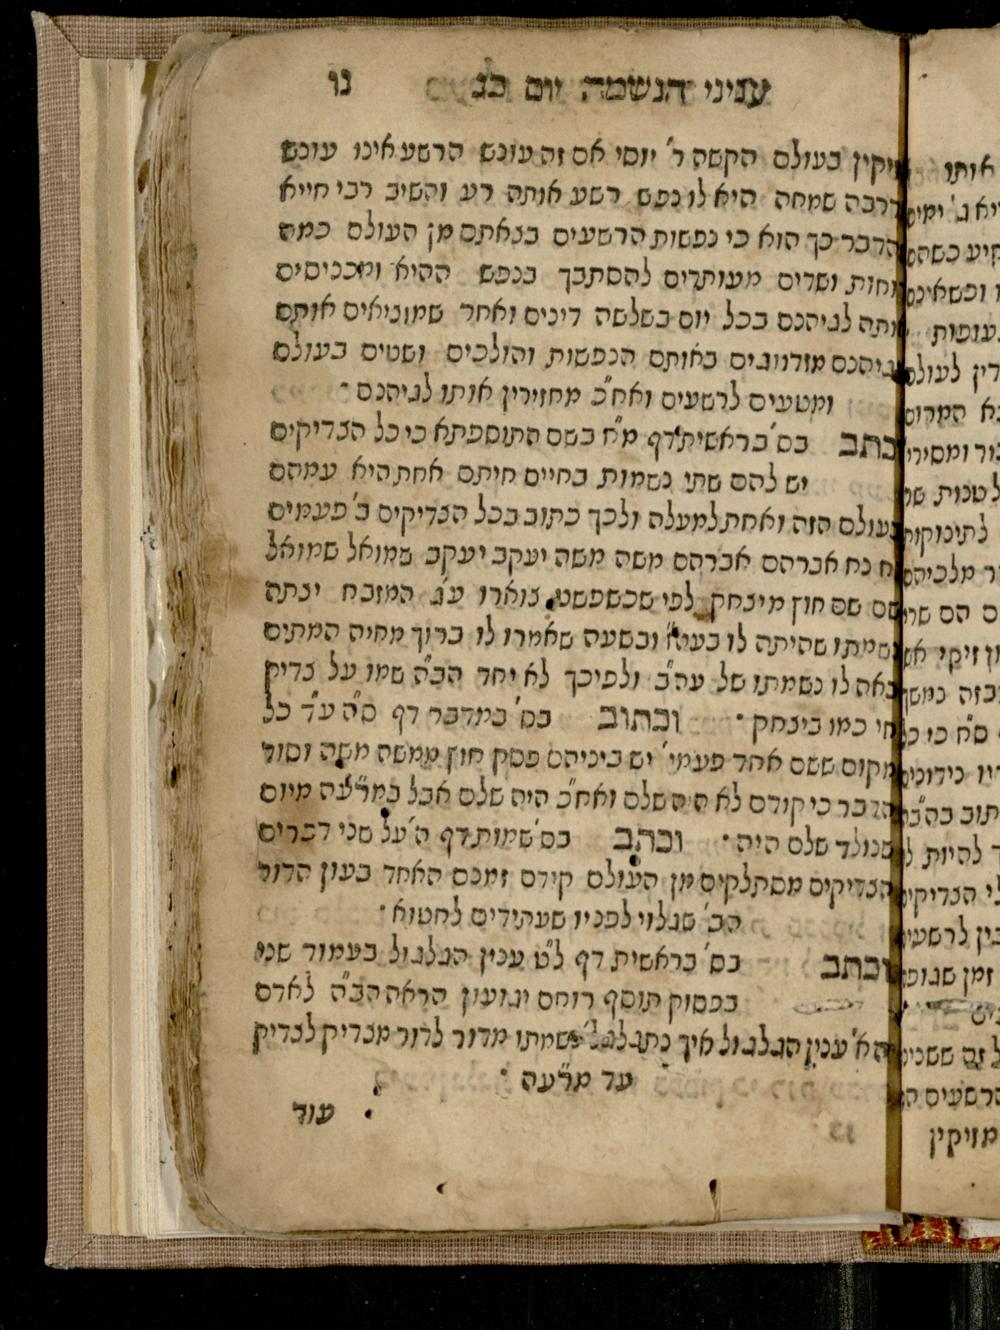 עניני הנשמה יום כב נו
מזיקין בעולם הקשה ר' יוסי אם זה עונש הרשע אינו עונש
דרבה שמחה היא לו נפש רשע אותה רע והשיב רבי חייא
הדבר כך הוא כי נפשות הרשעים בצאתם מן העולם כמה
רוחות ושדים מעותדים להסתבך בנפש ההיא ומכניסים
אותה לגיהנם בכל יום בשלשה דינים ואחר שמוציאים אותם
מגיהנם מזדווגים באותם הנפשות והולכים ושטים בעולם
ומטעים לרשעים ואח"כ מחזירין אותו לגיהנם ·
כתב בס' בראשית דף מ"ח בשם התוספתא כי כל הצדיקים
יש להם שתי נשמות בחיים חיתם אחת היא עמהם
בעולם הזה ואחת למעלה ולכך כתוב בכל הצדיקים ב' פעמים
נח נח אברהם אברהם משה משה יעקב יעקב שמואל שמואל
שם שם חוץ מיצחק לפי שכשפשט צוארו ע"ג המזבח יצתה
נשמתו שהיתה לו בעה"ז ובשעה שאמרו לו ברוך מחיה המתים
באה לו נשמתו של עה"ב ולפיכך לא יחד הב"ה שמו על צדיק
חי כמו ביצחק · וכתוב בס' במדבר דף ס"ה ע"ד כל
מקום ששם אחד פעמי' יש ביניהם פסק חוץ ממשה משה וסוד
הדבר כי קודם לא היה שלם ואח"כ היה שלם אבל במר"עה מיום
שנולד שלם היה · וכתב בס' שמות דף ה' על שני דברים
הצדיקים מסתלקים מן העולם קודם זמנם האחד בעון הדור
הב' שגלוי לפניו שעתידים לחטוא ·
וכתב בס' בראשית דף ל"ט ענין הגלגול בעמוד שני
בפסוק תוסף רוחם יגועון הראה הב"ה לאדם
הא' ענין הגלגול איך נתגלגל' נשמתו מדור לדור מצדיק לצדיק
עד מר"עה ·
עוד